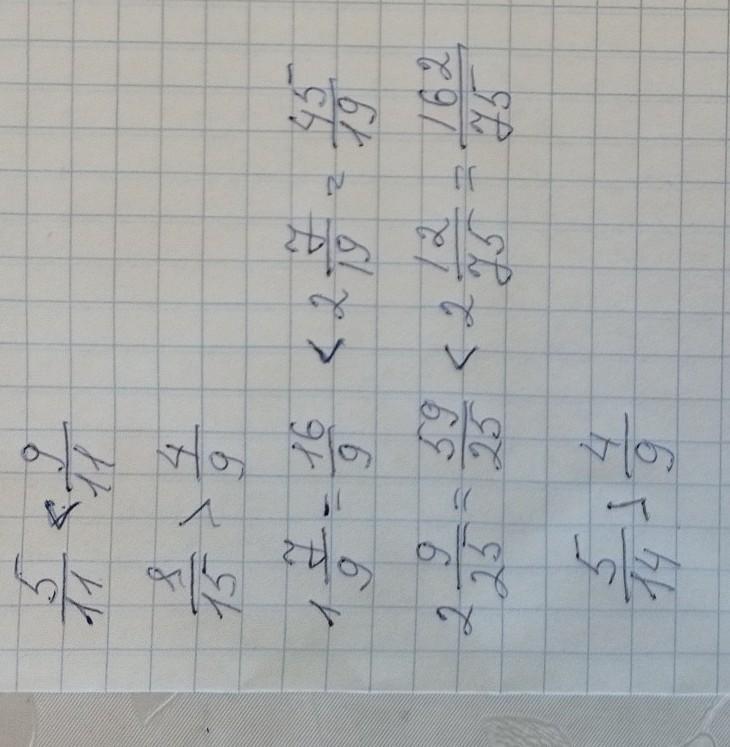 5/11 < 9/11
8/15 > 4/9
1 7/9 = 16/9 < 2 7/19 = 45/19
2 9/25 = 59/25 < 2 12/75 = 162/75
5/14 > 4/9